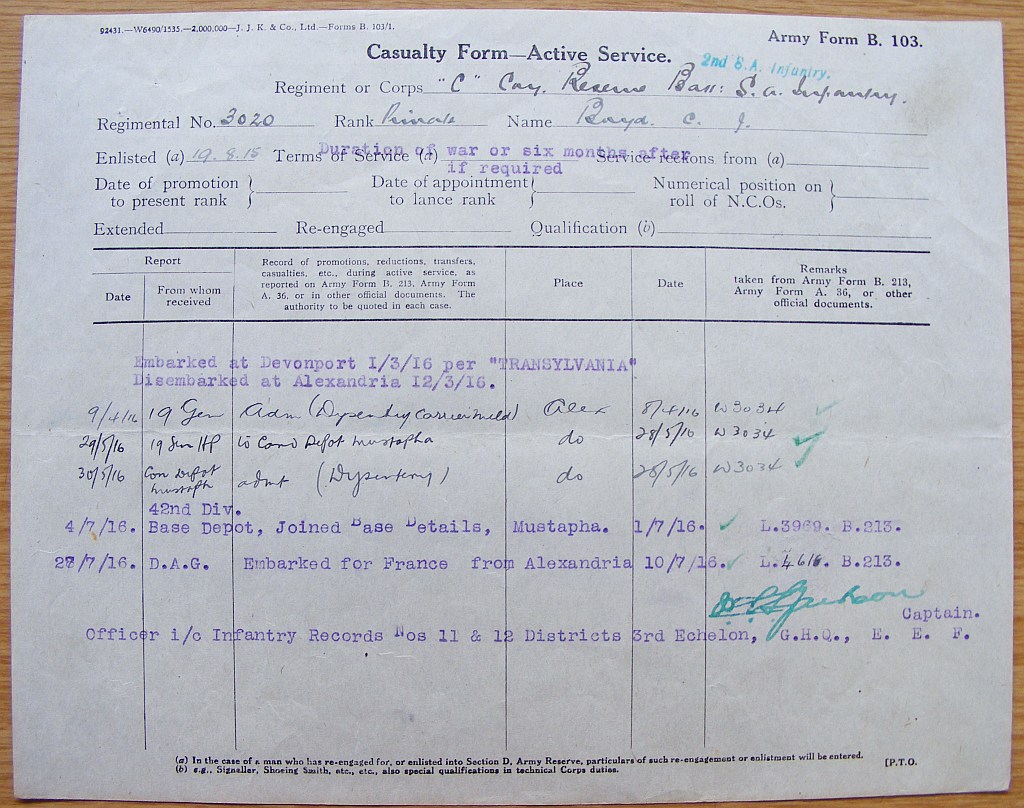 92431.—W6490/1535.—2,000,000—J. J. K. & Co., Ltd.—Forms B. 103/1.
Army Form B. 103.
Casualty Form—Active Service.
2nd S.A. Infantry.
Regiment or Corps "C" Coy. Reserve Batt: S.A. Infantry.
Regimental No. 3020 Rank Private Name Boyd. C. J.
Enlisted (a) 19.8.15 Terms of Service (a) Duration of war or six months after Service reckons from (a)
if required
Date of promotion to present rank } Date of appointment to lance rank } Numerical position on roll of N.C.Os. }
Extended Re-engaged Qualification (b)
Report
Date
From whom received
Record of promotions, reductions, transfers, casualties, etc., during active service, as reported on Army Form B. 213, Army Form A. 36, or in other official documents. The authority to be quoted in each case.
Place
Date
Remarks taken from Army Form B. 213, Army Form A. 36, or other official documents.
Embarked at Devonport 1/3/16 per "TRANSYLVANIA"
Disembarked at Alexandria 12/3/16.
9/4/16 19 Gen Adm (Dysentry carrier mild) Alex 8/4/16 W3034
29/5/16 19 Gen HP to Conv Depot Mustapha do 28/5/16 W3034
30/5/16 Con Depot Mustaph admt (Dysentery) do 28/5/16 W3034
42nd Div.
4/7/16. Base Depot, Joined Base Details, Mustapha. 1/7/16. L.3969. B.213.
28/7/16. D.A.G. Embarked for France from Alexandria 10/7/16. L.4616. B.213.
Jackson
Captain.
Officer i/c Infantry Records Nos 11 & 12 Districts 3rd Echelon, G.H.Q., E. E. F.
(a) In the case of a man who has re-engaged for, or enlisted into Section D, Army Reserve, particulars of such re-engagement or enlistment will be entered.
(b) e.g., Signaller, Shoeing Smith, etc., etc., also special qualifications in technical Corps duties.
[P.T.O.